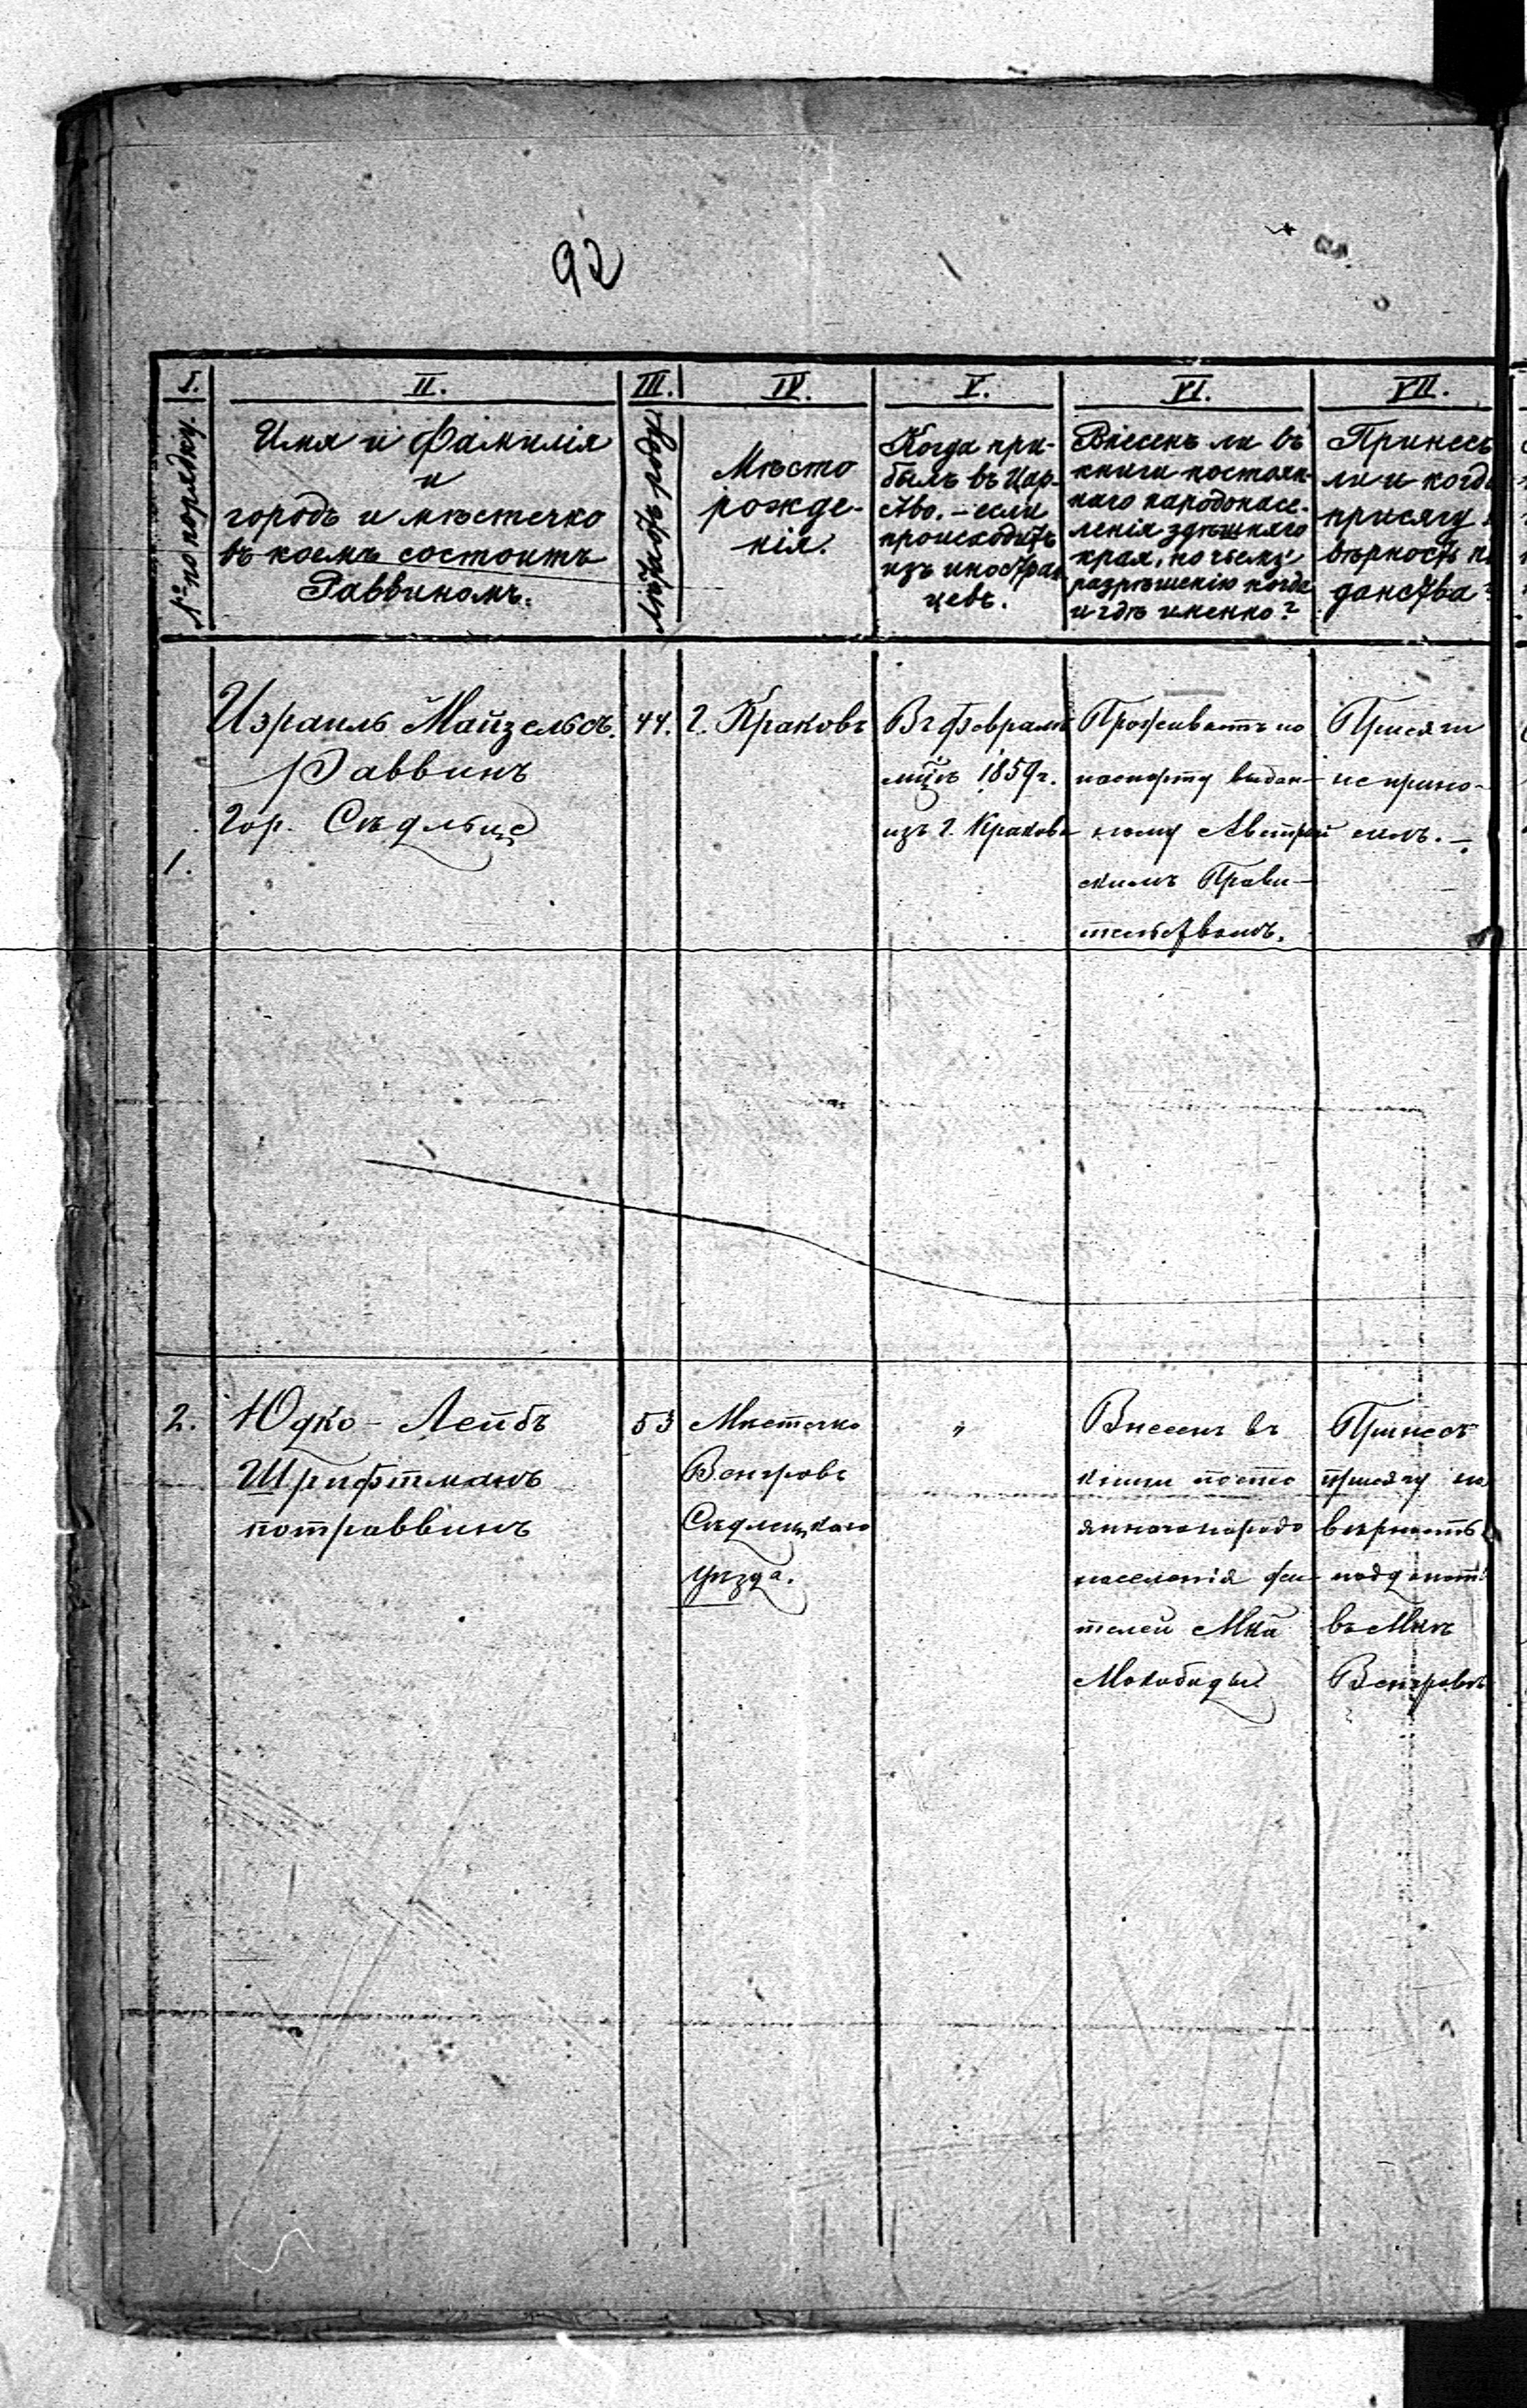 92
I.
№ по порядку.
II.
Имя и Фамилія
и
городъ и мѣстечко
въ коемъ состоитъ
Раввиномъ.
III.
Лѣтъ отъ роду
IV.
Мѣсто
рожде-
нія.
V.
Когда при-
былъ въ Цар-
ство. – если
происходитъ
изъ иностран
цевъ.
VI.
Внесенъ ли въ
книги постоян-
наго народонасе-
ленія здѣшняго
края, по чьему
разрѣшенію когда
и гдѣ именно?
VII.
Принесъ
ли и когда
присягу
вѣрность по
данства?
1.
Израиль Майзельсъ.
Раввинъ
Гор. Сѣдльце
44.
Г. Краковъ
Въ Февралѣ
мцѣ 1859 г.
изъ г. Кракова
Проживаетъ по
паспорту выдан-
ному Австрій
скимъ Прави-
тельствомъ.
Присяги
не прино-
силъ. –
2.
Юдко - Лейбъ
Шрифтманъ
потраввинъ
53
Мѣстечко
Венгровъ
Сѣдлецкаго
уѣзда.
"
Внесенъ въ
книги посто
яннаго народо
населенія жи-
телей Мка
Мокободы
Принесъ
присягу на
вѣрность
подданст
въ Мкѣ
Венгровѣ